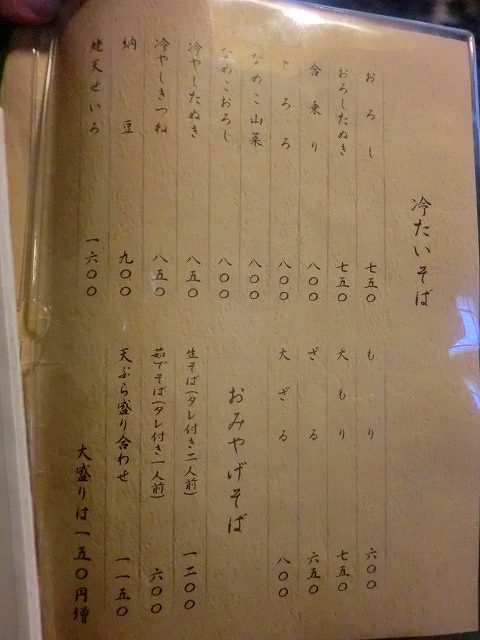 冷たいそば
おろし 七五〇
おろしたぬき 七五〇
合乗り 八〇〇
とろろ 八〇〇
なめこ山菜 八〇〇
なめこおろし 八〇〇
冷やしたぬき 八五〇
冷やしきつね 八五〇
納豆 九〇〇
天せいろ 一六〇〇
もり 六〇〇
大もり 七五〇
ざる 六五〇
大ざる 八〇〇
おみやげそば
生そば(タレ付き二人前) 一二〇〇
茹でそば(タレ付き一人前) 六〇〇
天ぷら盛り合わせ 一一五〇
大盛りは一五〇円増